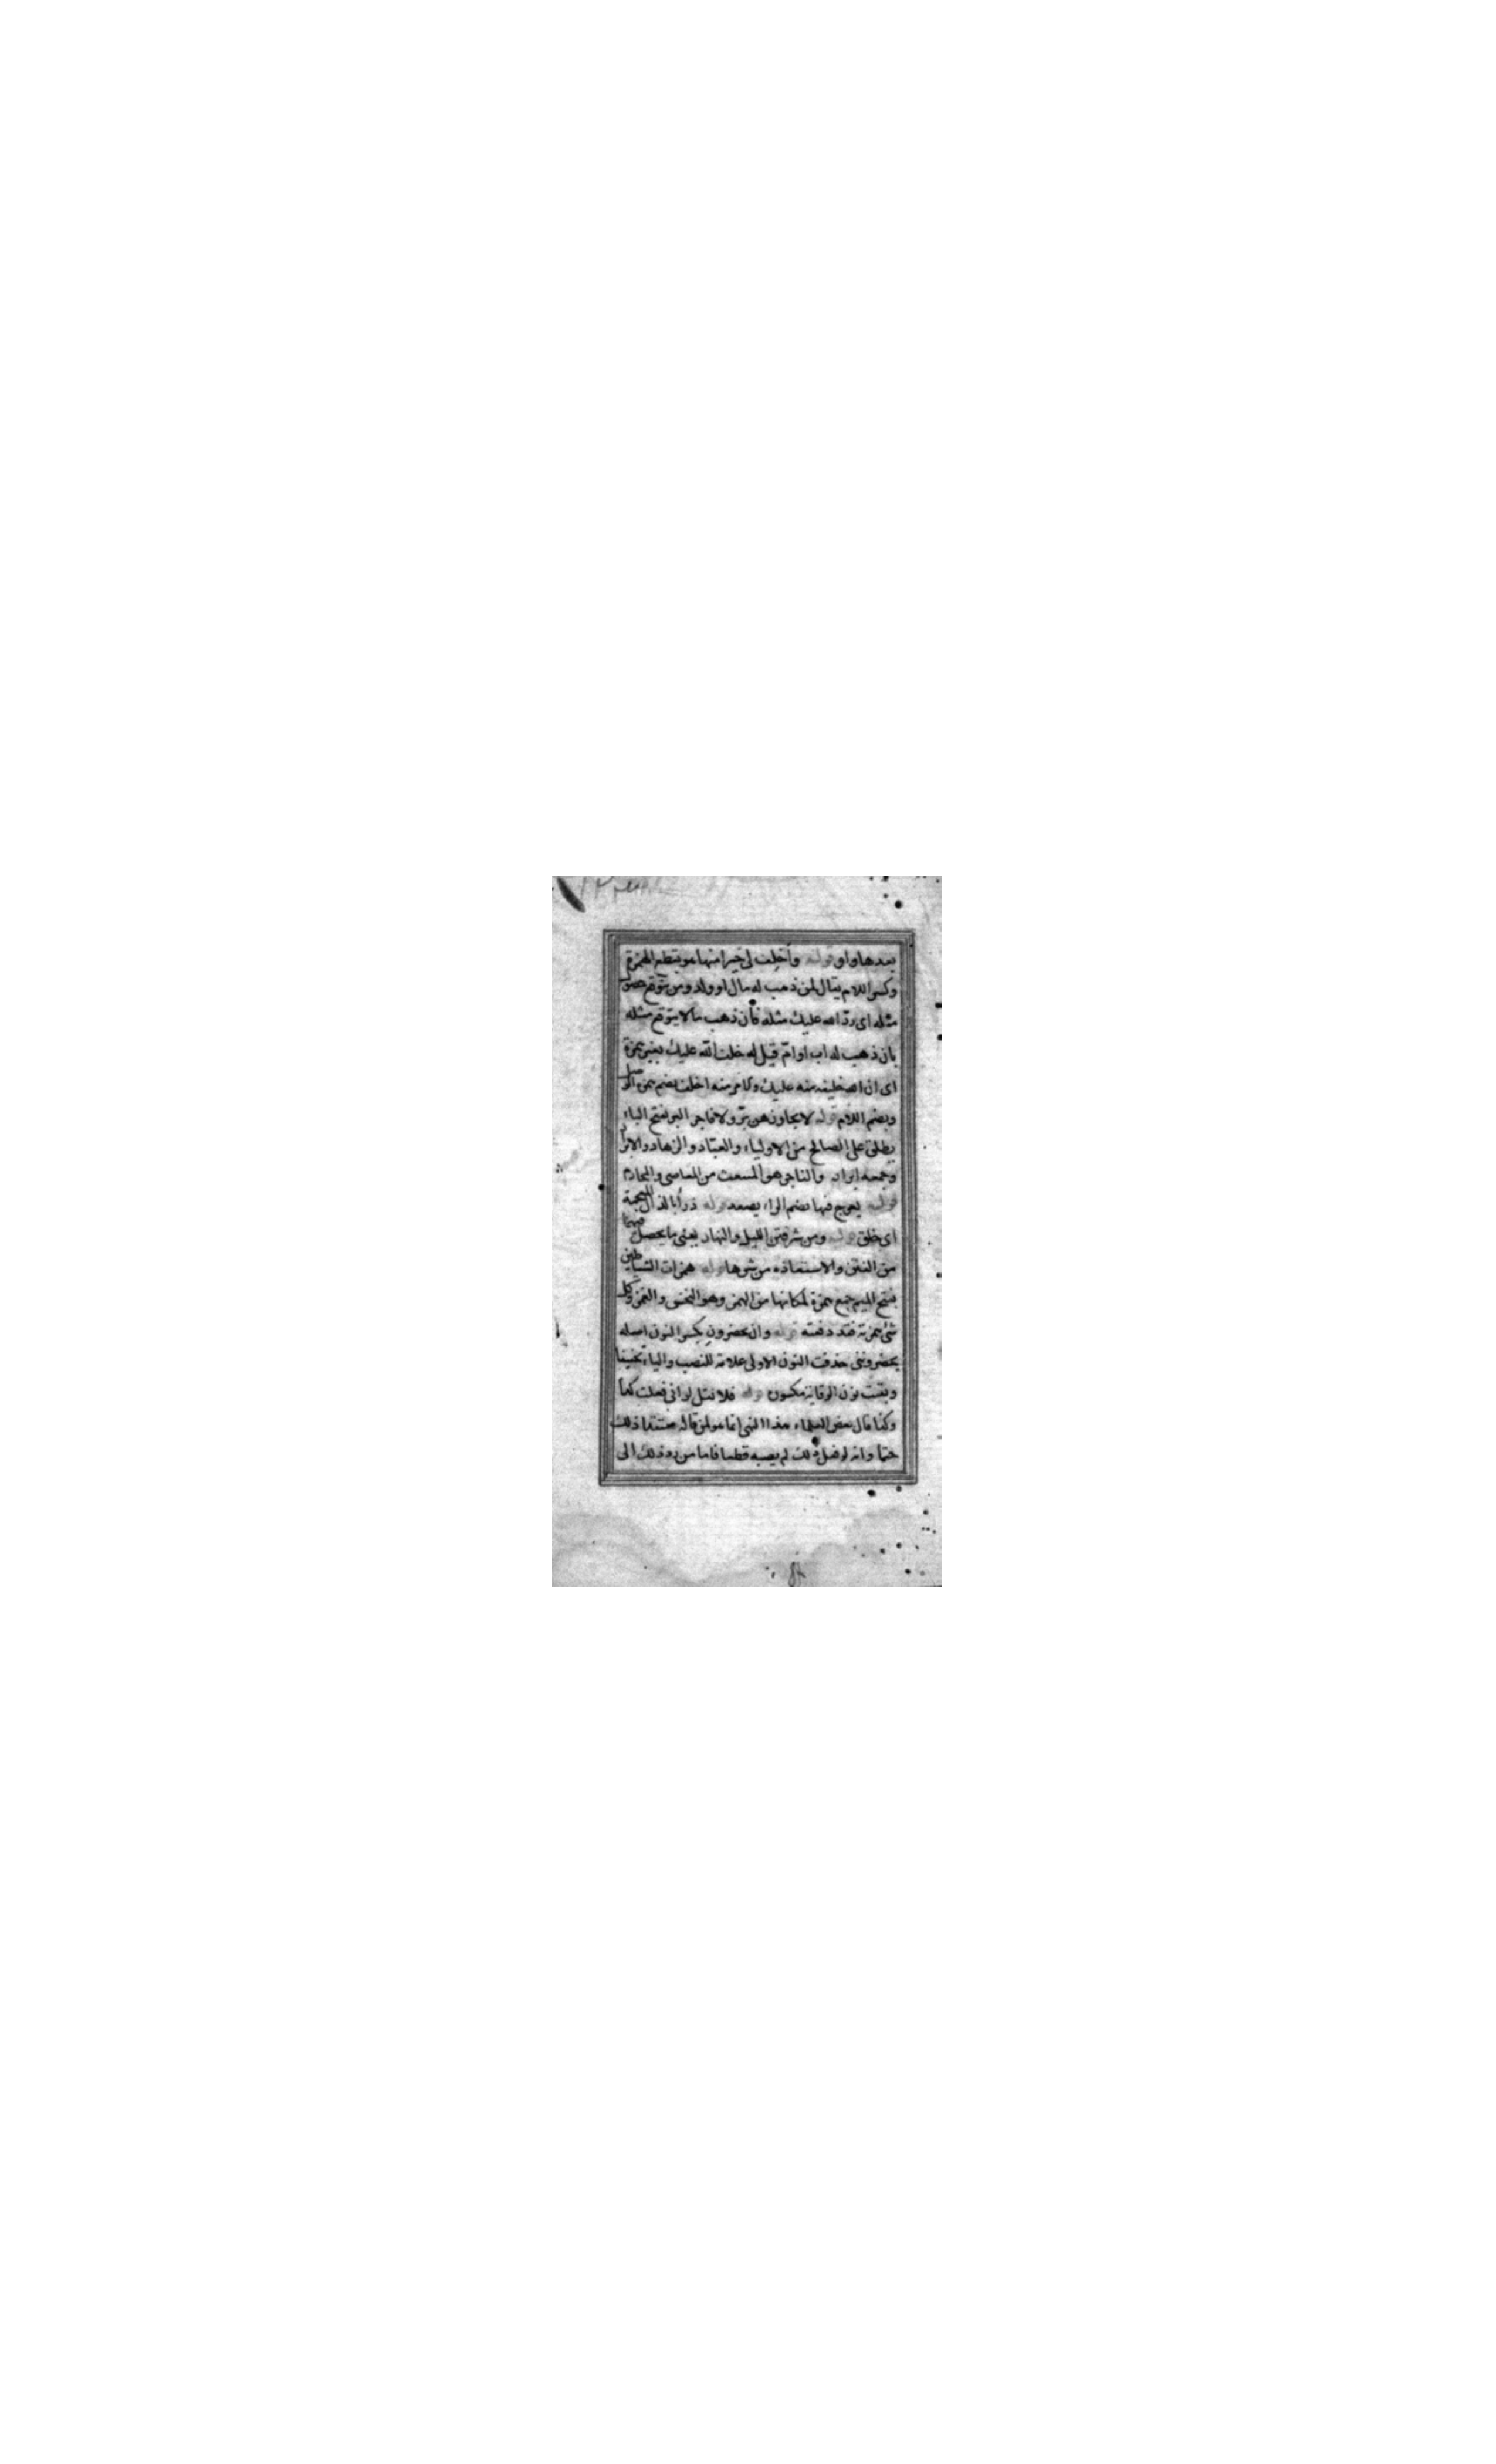 بعدها واو قوله وأخلف لي خيرا منها هو بقطع الهمزة
وكسر اللام يقال لمن ذهب له مال او ولد ومن يتوقع حصول
مثله اى ردّ الله عليك مثله فأن ذهب ما لا يتوقع مثله
بان ذهب له اب او امّ قيل له خلف اللّه عليك بغير همزة
اى ان الله خليفه منه عليك والامر منه اخلف بضم همزة الوصل
وبضم اللام قوله لا يجاوزهن برّ ولا فاجر البر بفتح الباء
يطلق على الصالح من الاولياء والعبّاد والزهاد والابرار
وجمعه ابرار والفاجر هو المنبعث من المعاصى والمحارم
قوله يعرج فيها بضم الراء يصعد قوله ذرأ بالذال المعجمة
اى خلق قوله ومن شر فتن الليل والنهار يعنى ما يحصل فيهما
من الفتن والاستعاذه من شرها قوله همزات الشياطين
بفتح الميم جمع همزة لمكانها من الهمز وهو النخس والغمز وكل
شئ همزته فقد دفعته قوله وان يحضرونِ بكسر النون اصله
يحضروننى حذفت النون الاولى علامة للنصب والياء تخفيفا
وبقيت نون الوقاية مكسون قوله فلا تقل لو انى فعلت كذا
وكذا قال بعض العلماء هذا النهى انما هو لمن قاله معتقدا ذلك
حتما وانه لو فعل ذلك لم يصبه قطعا فاما من رد ذلك الى